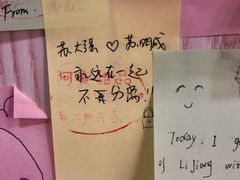 From:
苏大强 ♡ 苏明成
永远在一起
不再分离!
Today, I g
of Lijiang wit